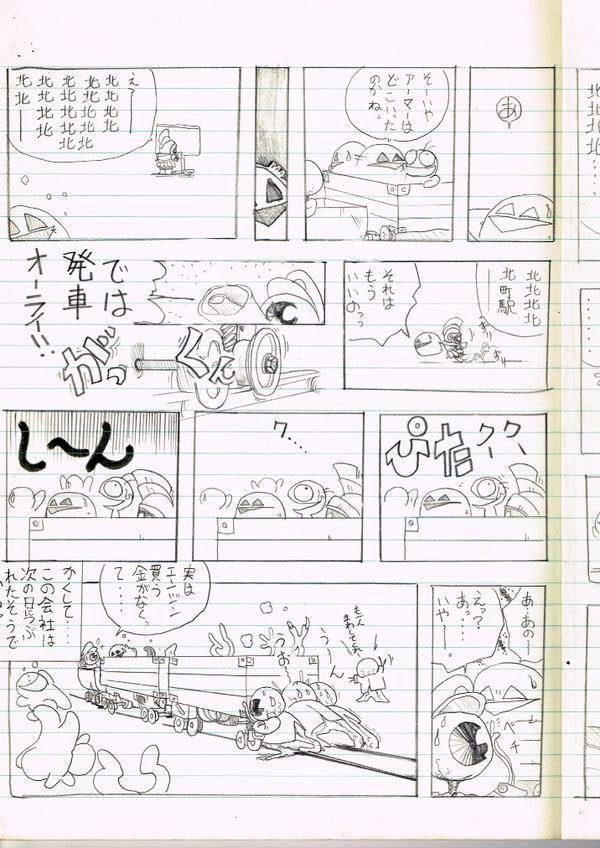 あ
そーいや
アーマーは
どこいった
のかね。
え〜
北北北
北北北北
北北北北
北北北
北北ー
北北北北
ー北町駅
それは
もう
いいのっっ
では
発車
オーライ!!
がっくん
クークー
ぴた
ク…
し〜ん
あ…あの〜
えっ?
あっ……
いや〜。
ペチ
実は
エンジン
買う
金がなく
て……
う〜ん
うお〜
かくして……
この会社は
次の日つぶ
れたそうで